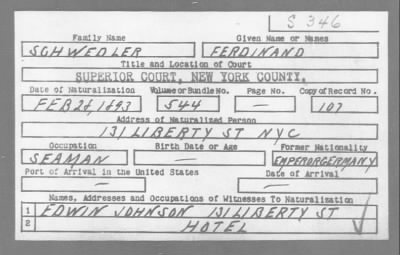 S 346
Family Name Given Name or Names
SCHWEDLER FERDINAND
Title and Location of Court
SUPERIOR COURT, NEW YORK COUNTY.
Date of Naturalization Volume or Bundle No. Page No. Copy of Record No.
FEB 26, 1893 544 — 107
Address of Naturalized Person
131 LIBERTY ST NYC
Occupation Birth Date or Age Former Nationality
SEAMAN — EMPEROR GERMANY
Port of Arrival in the United States Date of Arrival
— —
Names, Addresses and Occupations of Witnesses To Naturalization
1 EDWIN JOHNSON 131 LIBERTY ST
2 HOTEL